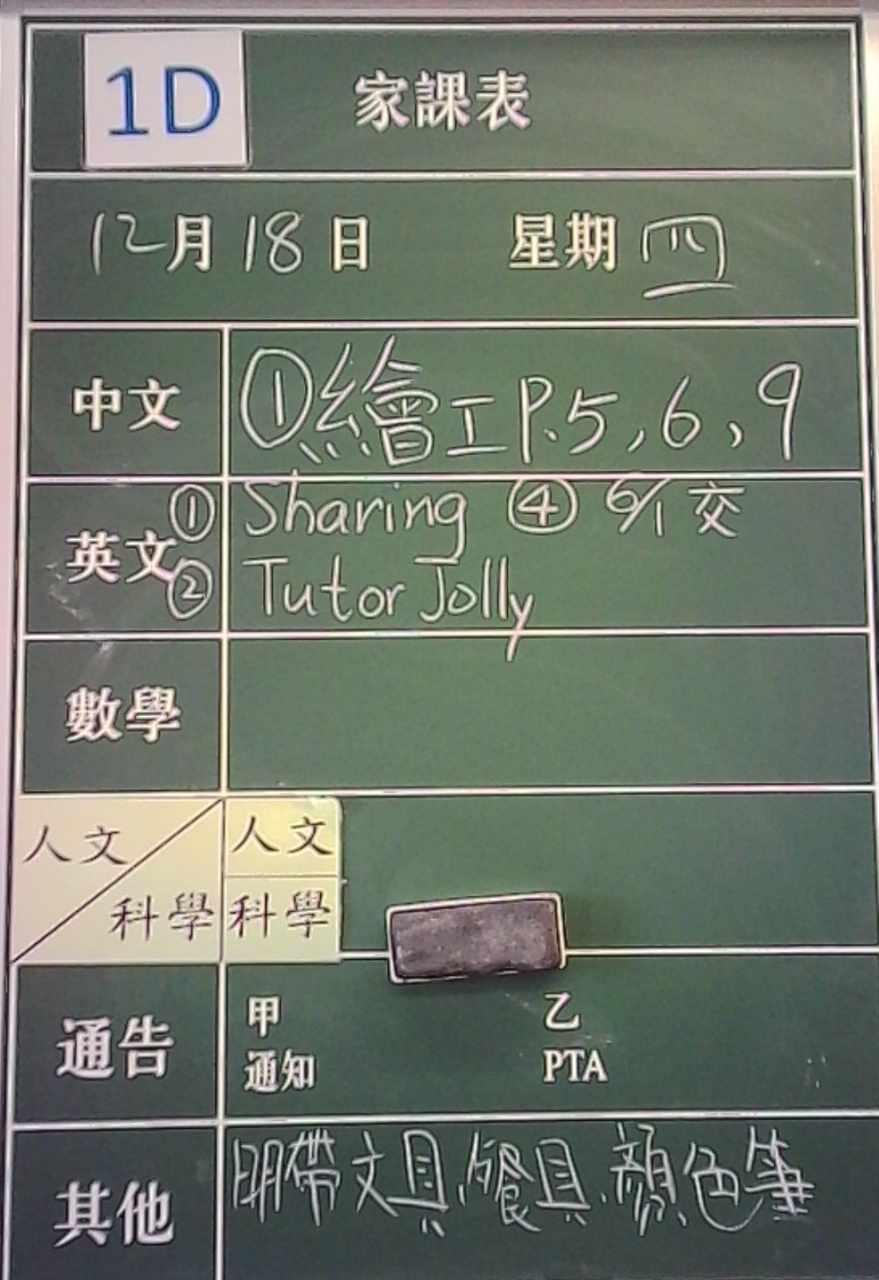 1D 家課表
12月18日 星期四
中文 ①繪工P.5,6,9
英文 ① Sharing ④ 6/1 交
② Tutor Jolly
數學
人文 人文
科學 科學
通告 甲 乙
通知 PTA
其他 明帶文具、餐具、顏色筆